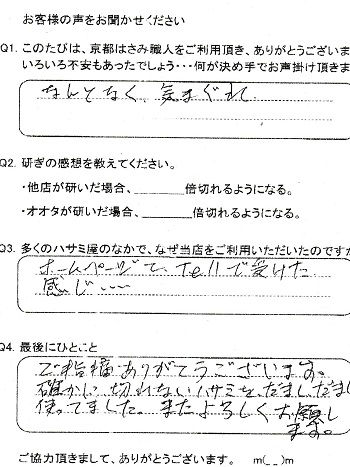 お客様の声をお聞かせください
Q1. このたびは、京都はさみ職人をご利用頂き、ありがとうございま
いろいろ不安もあったでしょう・・・何が決め手でお声掛け頂きま
なんとなく 気まぐれで
Q2. 研ぎの感想を教えてください。
・他店が研いだ場合、______倍切れるようになる。
・オオタが研いだ場合、______倍切れるようになる。
Q3. 多くのハサミ屋のなかで、なぜ当店をご利用いただいたのですか
ホームページで、Tellで受けた
感じ……
Q4. 最後にひとこと
ご指摘ありがとうございます。
確かに切れないハサミを、だましだまし
使ってました。またよろしくお願いし
ます。
ご協力頂きまして、ありがとうございます。 m(_ _)m